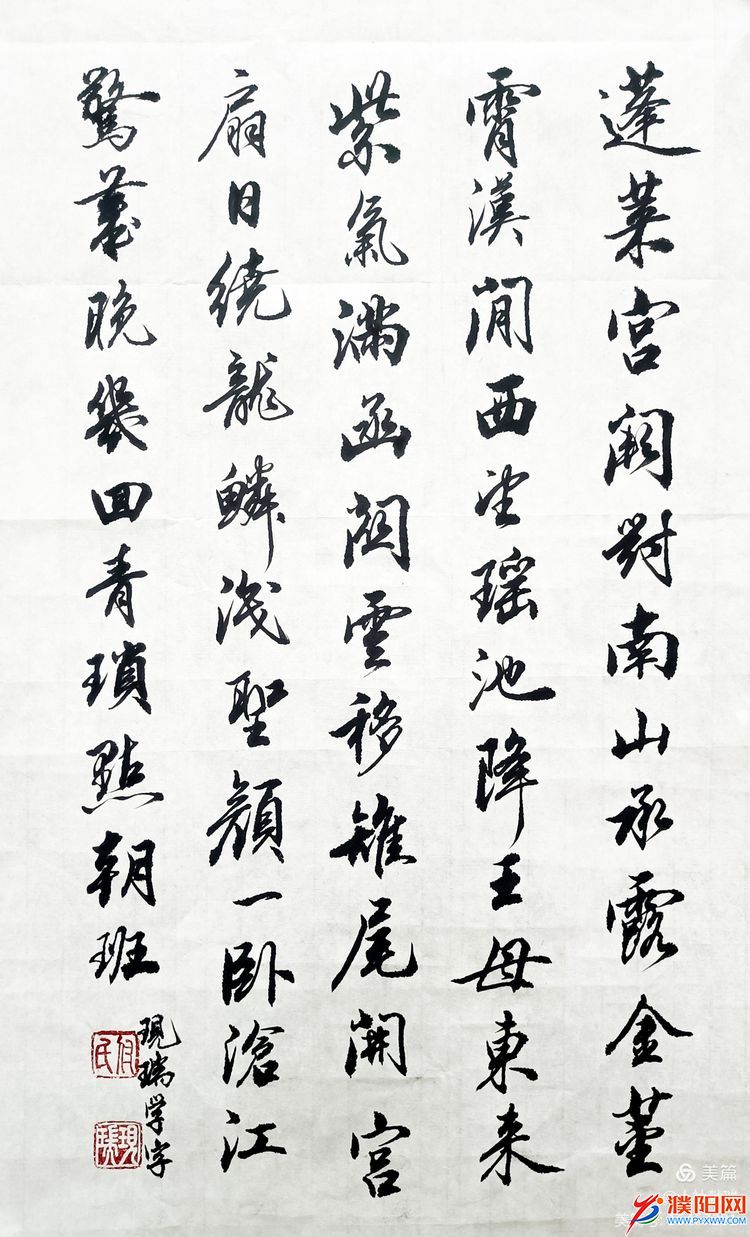 蓬莱宫阙對南山承露金莖
霄漢間西望瑶池降王母東来
紫氣滿函關雲移雉尾開宫
扇日繞龍鱗識聖顔一卧滄江
驚歲晚幾回青瑣點朝班
現瑞学字
美篇
濮阳网
WWW.PYXWW.COM